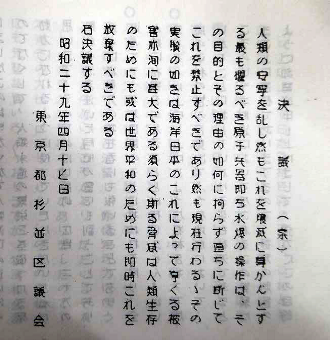 決議（案）
人類の安寧を乱し然もこれを壊滅に導かんとす
る最も憎るべき原子兵器即ち水爆の操作は、そ
の目的とその理由の如何に拘らず直ちに断じて
これを禁止すべきであり然も現在行わるゝその
実験の如きは海洋日本のこれによって享くる被
害亦洵に甚大である須らく斯る脅威は人類生存
のためにも或は世界平和のためにも即時これを
放棄すべきである
右決議する
昭和二十九年四月十七日
東京都杉並区議会